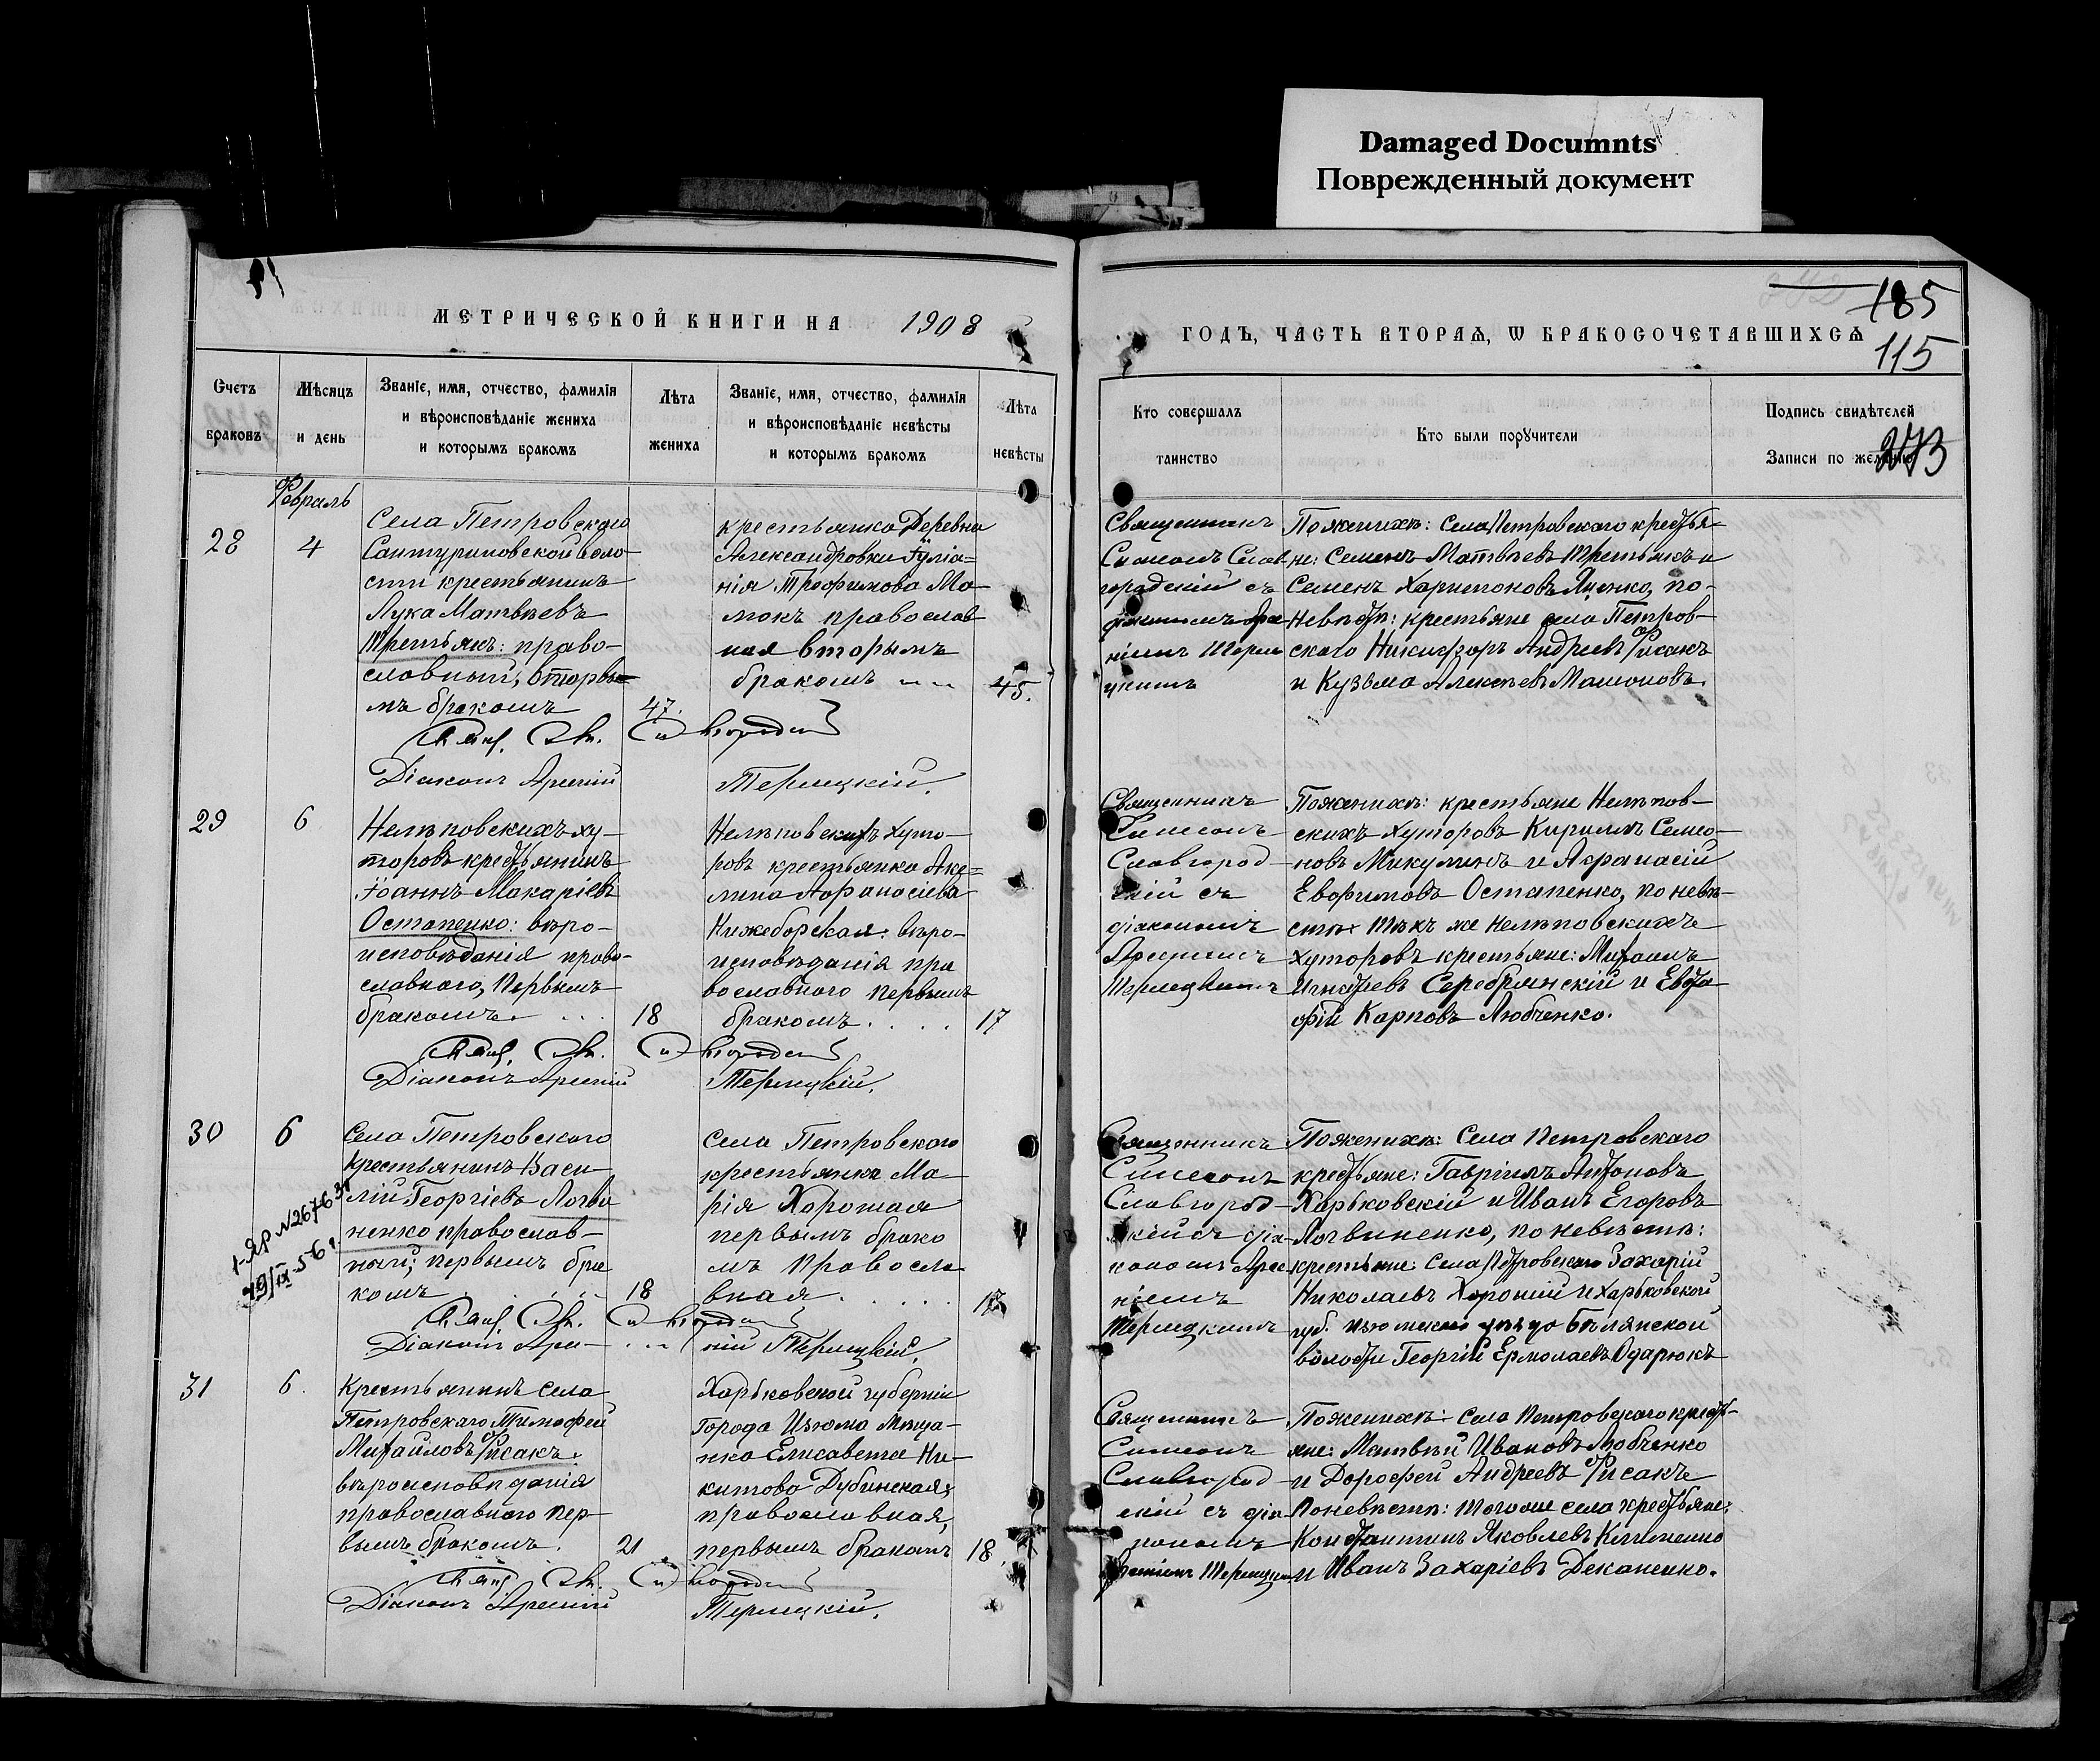 Damaged Documnts
Поврежденный документ
МЕТРИЧЕСКОЙ КНИГИ НА 1908
ГОДЪ, ЧАСТЬ ВТОРАѦ, Ѡ БРАКОСОЧЕТАВШИХСѦ
185
115
273
Счетъ
браковъ
Мѣсяцъ
и день
Званіе, имя, отчество, фамилія
и вѣроисповѣданіе жениха
и которымъ бракомъ
Лѣта
жениха
Званіе, имя, отчество, фамилія
и вѣроисповѣданіе невѣсты
и которымъ бракомъ
Лѣта
невѣсты
Кто совершалъ
таинство
Кто были поручители
Подпись свидѣтелей
Записи по желанію
Февраль
28
4
Села Петровскаго
Сантуриновской воло-
сти крестьянинъ
Лука Матвѣевъ
Третьякъ: право-
славный, вторы-
мъ бракомъ
47.
крестьянка Деревни
Александровки Іуліа=
нія Трофимова Ма-
мокъ православ
ная вторымъ
бракомъ
45.
Діаконъ Арсеній
Терлецкій.
Священникъ
Симеонъ Слав
городскій съ
діакономъ Арсе
ніемъ Терле
цкимъ
По женихѣ: села Петровскаго кресть-
не: Семенъ Матвѣевъ Третьякъ и
Семенъ Харитоновъ Яценко, по-
Невѣстѣ: крестьяне села Петров-
скаго Никифоръ Андреевъ Фисакъ
и Кузьма Алексѣевъ Мамоновъ.
29
6
Нелѣповскихъ ху-
торовъ крестьянинъ
Іоаннъ Макаріевъ
Остапенко: вѣро-
исповѣданія право-
славнаго, первымъ
бракомъ.
18
Нелѣповскихъ Хуто-
ровъ крестьянка Аки=
лина Афанасіева
Нижеборская: вѣро-
исповѣданія пра
вославнаго первымъ
бракомъ.
17
Діаконъ Арсеній
Терлецкій.
Священникъ
Симеонъ
Славгород-
скій съ
діакономъ
Арсеніемъ
Терлецкимъ
По женихѣ: крестьяне Нелѣпов-
скихъ Хуторовъ Кириллъ Семео-
новъ Микулинъ и Афанасій
Евфимовъ Остапенко, по невѣ-
стѣ: тѣхъ же Нелѣповскихъ
Хуторовъ крестьяне: Михаилъ
Игнатьевъ Серебрянскій и Евста-
фій Карповъ Любченко.
30
6
1-ЯР №267631
19/IX-56г.
Села Петровскаго
Крестьянинъ Васи-
лій Георгіевъ Логви
ненко православ-
ный; первымъ бра
комъ
18
Села Петровскаго
крестьянка Ма-
рія Хорошая
первымъ брако
мъ правосла
вная.
17
Діаконъ Арсе-
ній Терлецкій.
Священникъ
Симеонъ
Славгород-
скій съ діа-
кономъ Арсе
ніемъ
Терлецкимъ
По женихѣ: Села Петровскаго
крестьяне: Гавріилъ Антоновъ
Харьковскій и Иванъ Егоровъ
Логвиненко, по невѣстѣ:
крестьяне: Села Петровскаго Захарій
Николаевъ Хорошій и Харьковской
губ. Изюмскаго уѣзда Бѣлянской
волости Георгій Ермолаевъ Одарюкъ
31
6.
Крестьянинъ села
Петровскаго Тимофей
Михайловъ Фисакъ.
вѣроисповѣданія
православнаго пер-
вымъ бракомъ.
21
Харьковской губерніи
города Изюма Мѣща-
нка Елисавета Ни-
китова Дубинская;
православная,
первымъ бракомъ
18.
Діаконъ Арсеній
Терлецкій.
Священникъ
Симеонъ
Славгород-
скій съ діа-
кономъ
Арсеніемъ Терлецкимъ
По женихѣ: села Петровскаго кресть-
яне: Матвѣй Ивановъ Любченко
и Дорофей Андреевъ Фисакъ
По невѣстѣ: того же села крестьяне:
Константинъ Яковлевъ Клименко
и Иванъ Захаріевъ Деканенко.